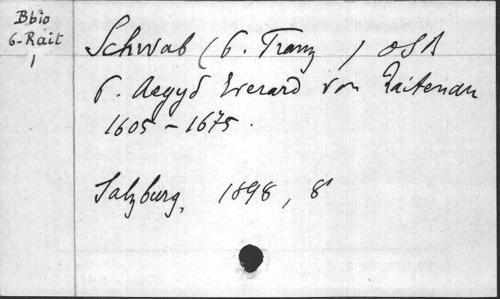 Bbio
6-Rait
1
Schwab (P. Franz) OSB
P. Aegyd Everard von Raitenau
1605-1675.
Salzburg, 1898, 8°